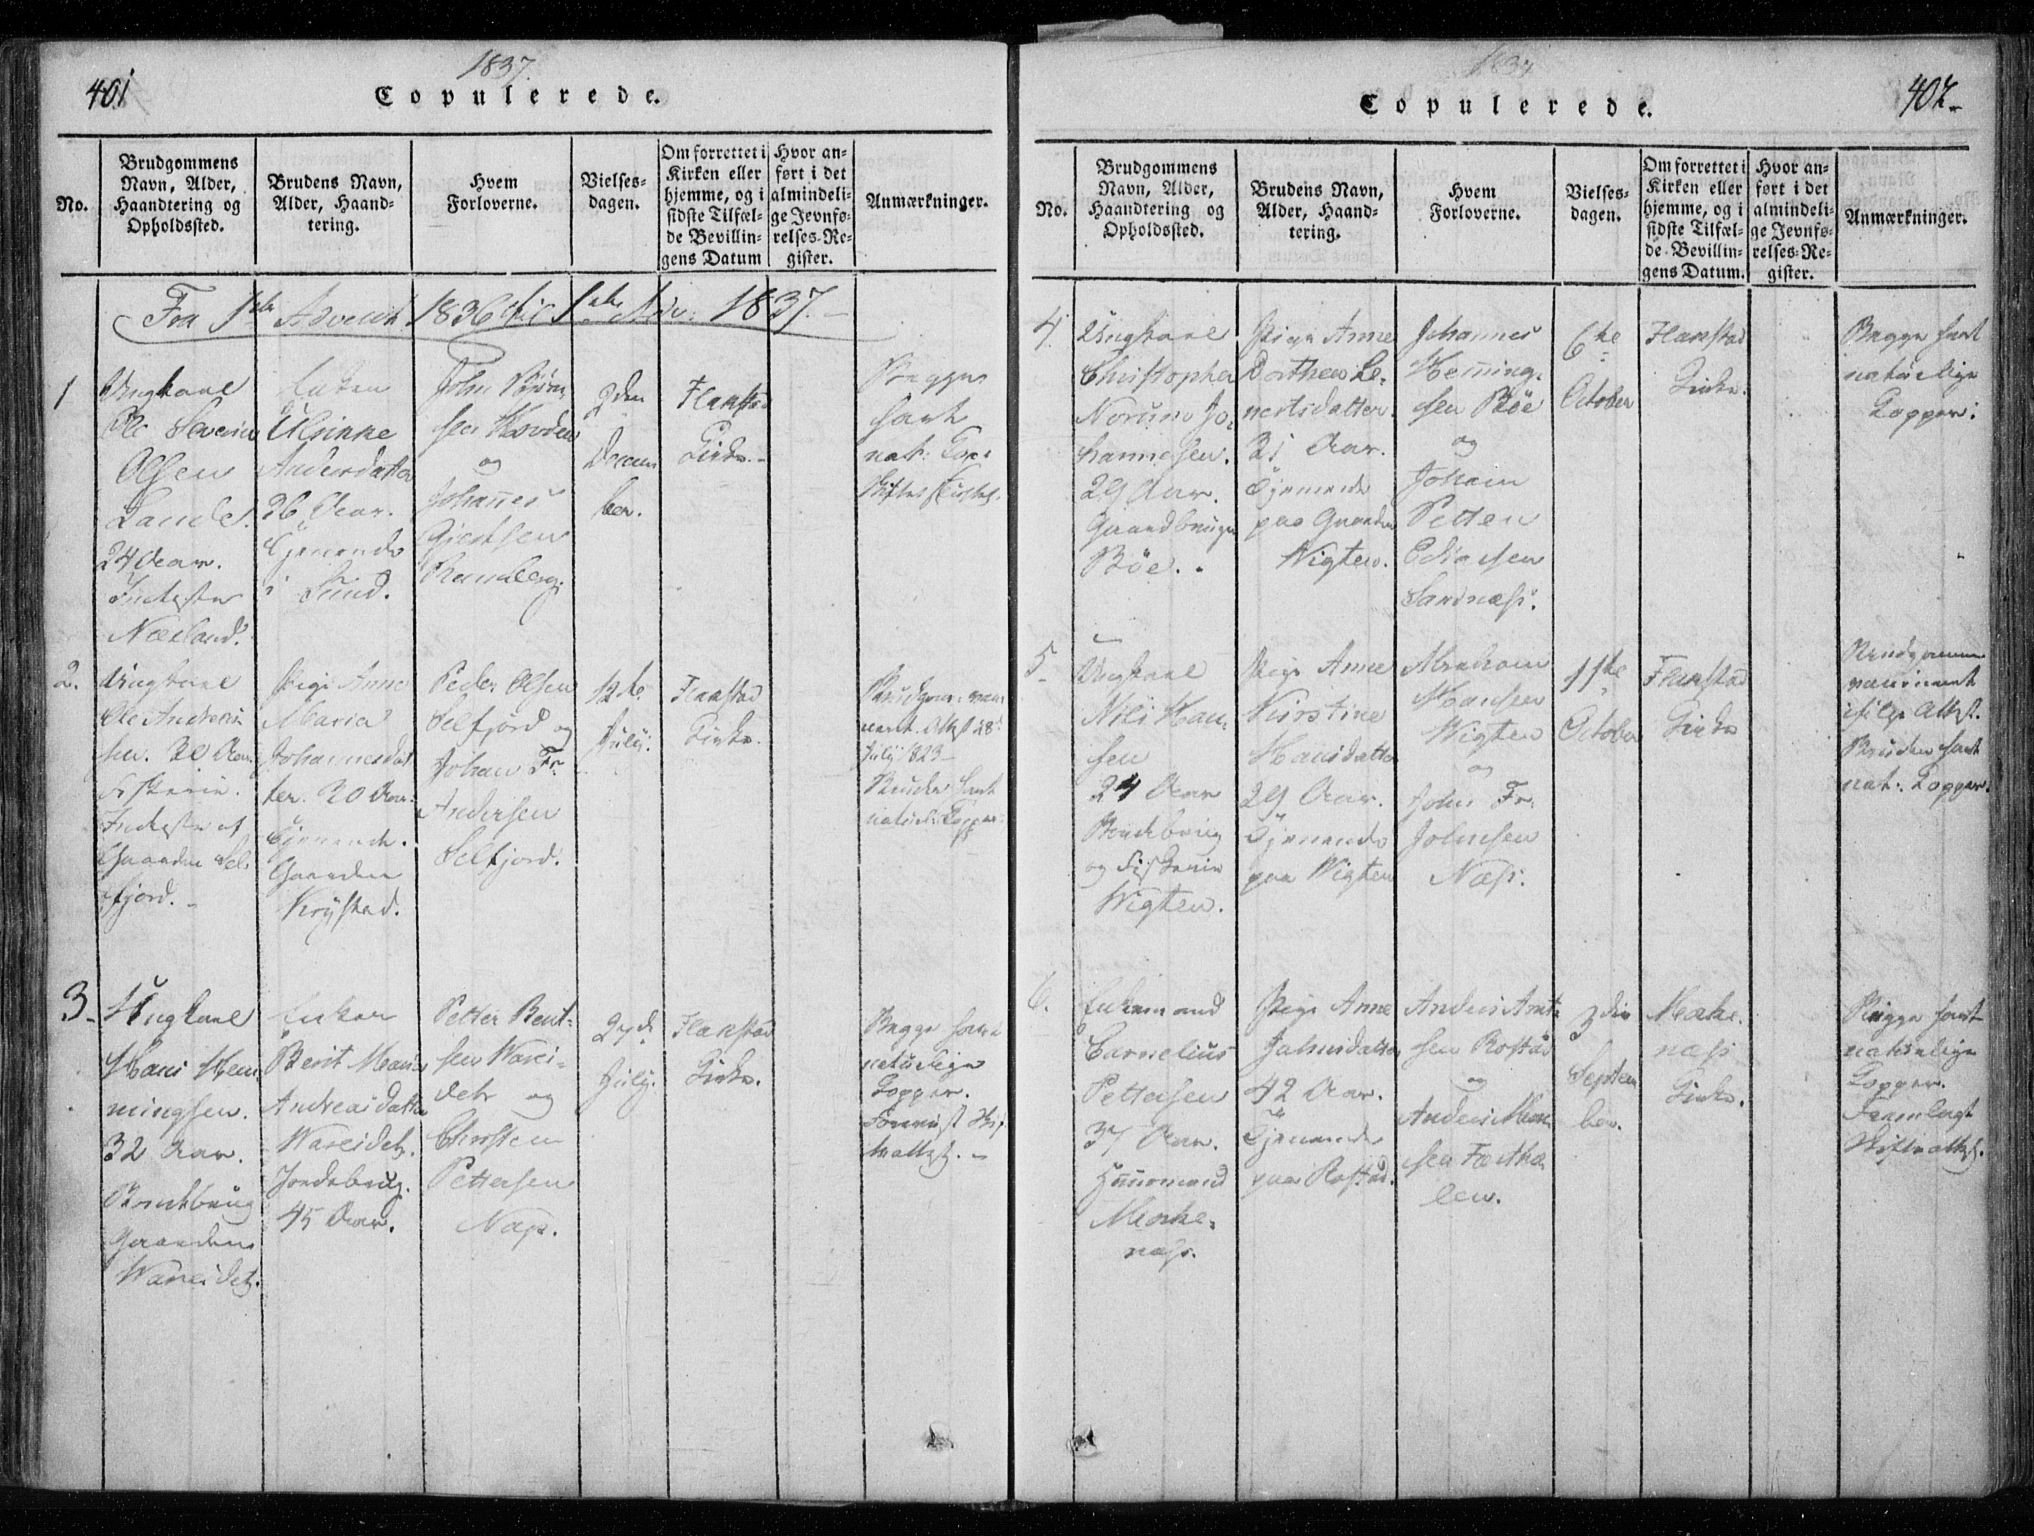 401
1837.
Copulerede.
No.
Brudgommens
Navn, Alder,
Haandtering og
Opholdssted.
Brudens Navn,
Alder, Haand-
tering.
Hvem
Forloverne.
Vielses-
dagen.
Om forrettet i
Kirken eller
hjemme, og i
sidste Tilfæl-
de Bevillin-
gens Datum
Hvor an-
ført i det
almindeli-
ge Jevnfø-
relses-Re-
gister.
Anmærkninger.
Fra 1ste Advent 1836 til 1ste Adv: 1837.
1
Ungkarl
Ole Severin
Olsen
Lande.
24 Aar.
Inderste
Næsland.
Enken
Ulrikke
Andersdatter
26 Aar.
Tjenende
i Sund.
John
sen
og
Johannes
Giertsen
Ramberg.
2den
Decem
ber.
Flakstad
Kirke.
Begge
havt
nat: Kop:
2.
Ungkarl
Ole Andrea
sen. 20 Aar.
Fiskerie.
Inderste
Gaarden Sel
fjord.
Pige Anne
Maria
Johannesdat
ter. 20 Aar.
Tjenende.
Gaarden
Krystad.
Peder Olsen
Selfjord og
Johan Fr.
Andersen
Selfjord.
12te
July.
Flakstad
Kirke.
Brudgom: vac
cinert. Attest 28d
July 1823
Bruden havt
naturl: Kopper.
3.
Ungkarl
Hans Hem
mingsen.
32 Aar.
Bondebrug
Gaarden
Wareidet.
Enken
Berit Maria
Andreasdatter
Wareidet.
Jordebrug.
45 Aar.
Petter Bent-
sen Warei-
det og
Christen
Pettersen
Nap.
27d.
July.
Flakstad
Kirke.
Begge havt
naturlige
Kopper.
Forevist Skif
teattest.
1837
402
Copulerede.
No.
Brudgommens
Navn, Alder,
Haandtering og
Opholdssted.
Brudens Navn,
Alder, Haand-
tering.
Hvem
Forloverne.
Vielses-
dagen.
Om forrettet i
Kirken eller
hjemme, og i
sidste Tilfæl-
de Bevillin-
gens Datum.
Hvor an-
ført i det
almindeli-
ge Jevnfø-
relses-Re-
gister.
Anmærkninger.
4.
Ungkarl
Christopher
Norum Jo-
hannesen.
29 Aar.
Gaardbruger
Böe.
Pige Anne
Dorthea Le-
nertsdatter.
21 Aar.
Tjenende
paa Gaarden
Wigten.
Johannes
Hemming-
sen Böe
og
Johan
Petter
Eliasen
Sandnæs.
6te
October
Flakstad
Kirke.
Begge havt
naturlige
Kopper.
5.
Ungkarl
Nils Han-
sen
24 Aar
Bondebrug
og Fiskerie
Wigten.
Pige Anne
Kirstine
Hansdatter
29 Aar.
Tjenende
paa Wigten
Abraham
Hansen
Wigten
og
John Fr.
Johnsen
Næs.
11te
October
Flakstad
Kirke
Brudgommen
vaccineert
ifølge Attest.
Bruden havt
nat: Kopper.
6.
Enkemand
Cornelius
Pettersen
37 Aar.
Huusmand
Moske-
næs.
Pige Anne
Johnsdatter
42 Aar.
Tjenende
paa Rostad.
Anders Arnt-
sen Rostad
og
Anders Han
sen
len.
3die
Septem
ber.
Moske-
næs
Kirke.
Begge havt
naturlige
Kopper.
Fremlagt
Skifteattest.